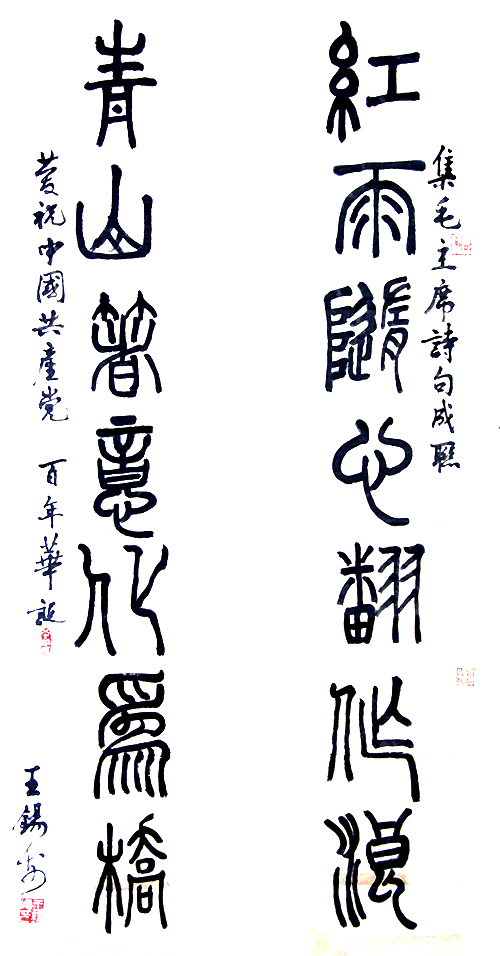 集毛主席詩句成聯
紅雨隨心翻作浪
青山著意化爲橋
慶祝中國共產党 百年華誕
王錫